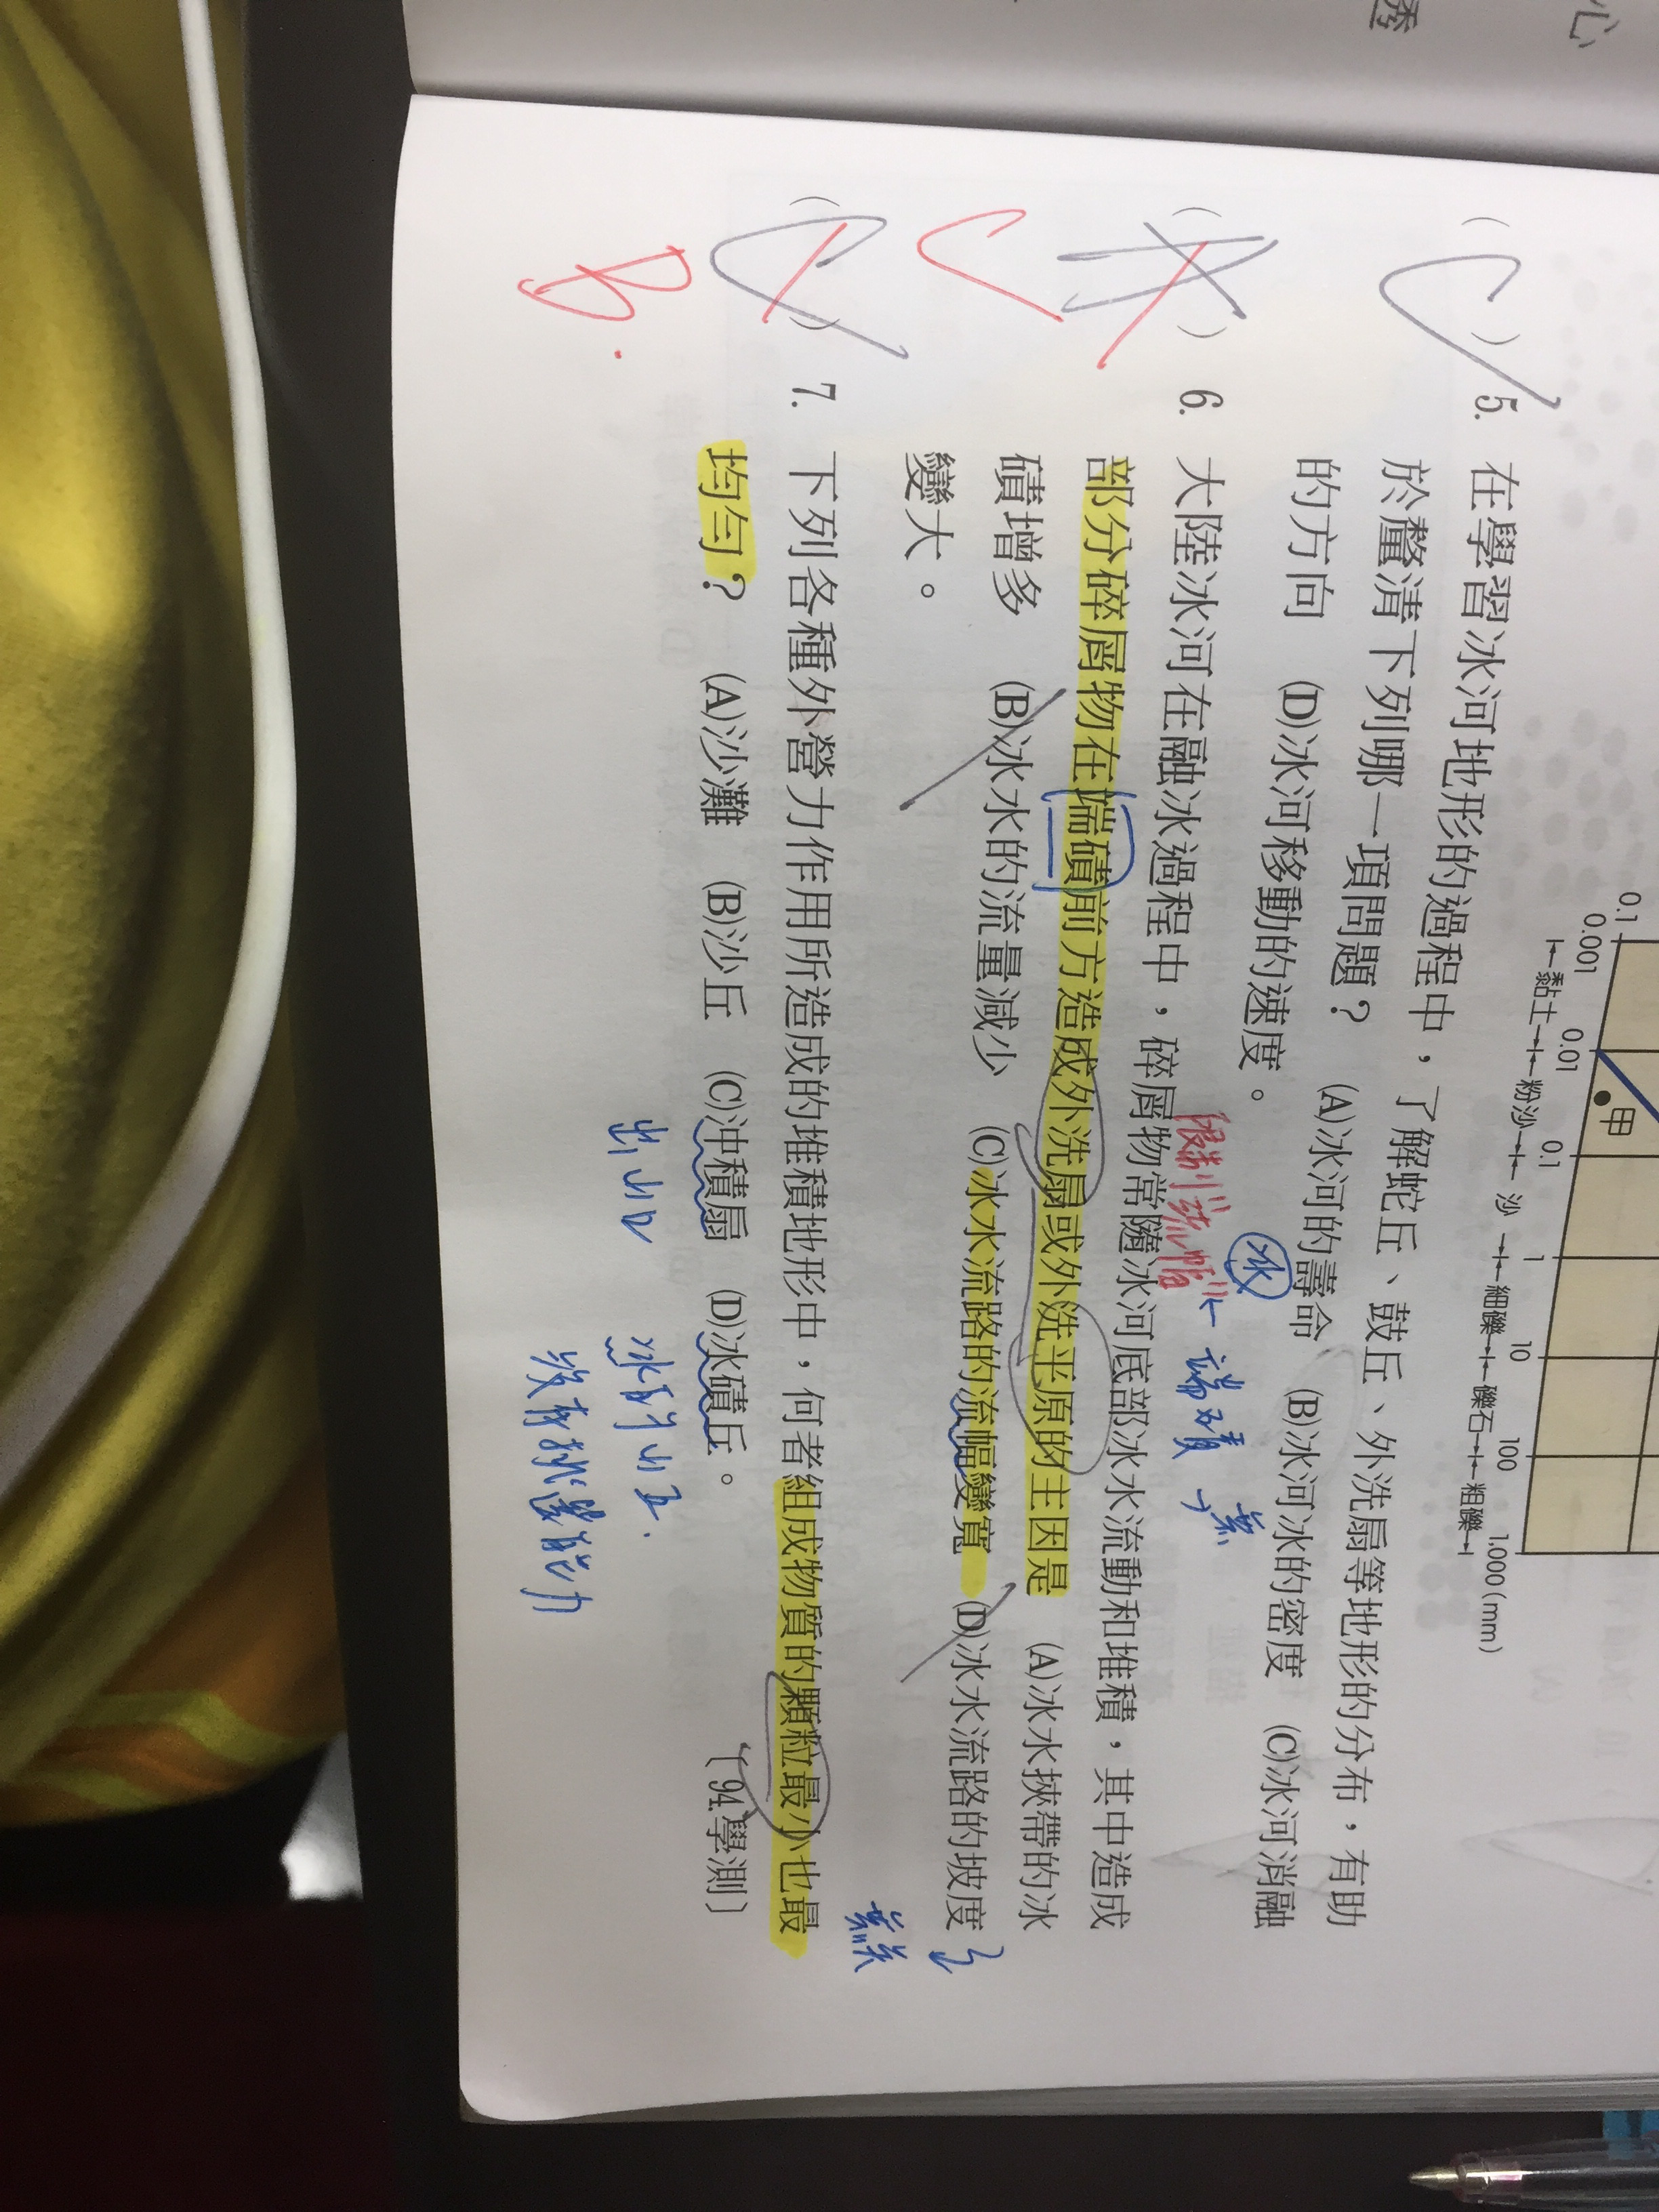 心
秀
0.1
0.001 0.01 0.1 1 10 100 1,000(mm)
甲
黏土 粉沙 沙 細礫 礫石 粗礫
( C ) 5. 在學習冰河地形的過程中，了解蛇丘、鼓丘、外洗扇等地形的分布，有助
於釐清下列哪一項問題？ (A)冰河的壽命 (B)冰河冰的密度 (C)冰河消融
的方向 (D)冰河移動的速度。
冰
限制流幅 端磧
( A ) 6. 大陸冰河在融冰過程中，碎屑物常隨冰河底部冰水流動和堆積，其中造成
部分碎屑物在端磧前方造成外洗扇或外洗平原的主因是 (A)冰水挾帶的冰
C
磧增多 (B)冰水的流量減少 (C)冰水流路的流幅變寬 (D)冰水流路的坡度
變大。
無關
( C ) 7. 下列各種外營力作用所造成的堆積地形中，何者組成物質的顆粒最小也最
均勻？ (A)沙灘 (B)沙丘 (C)沖積扇 (D)冰磧丘。 〔94.學測〕
B.
出山口
冰河
沒有挑選能力